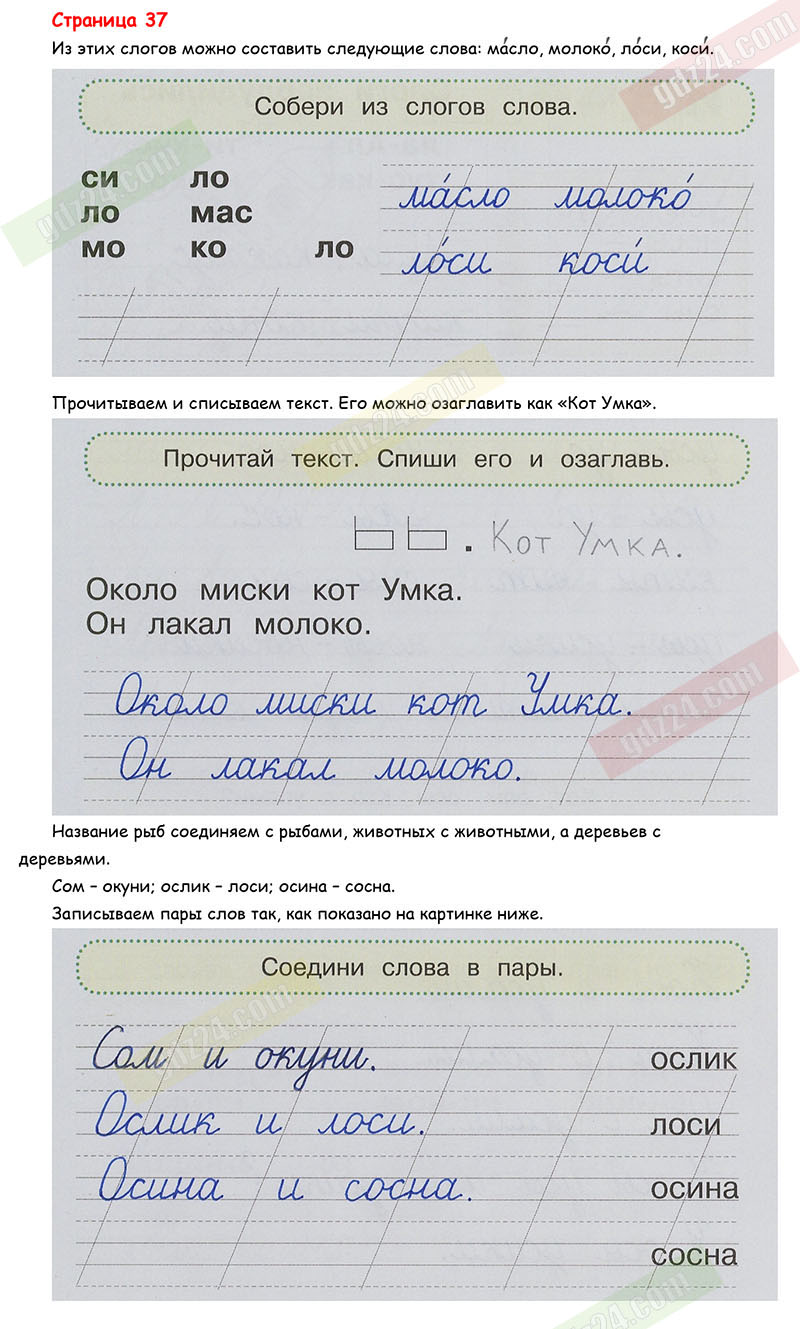 Страница 37
Из этих слогов можно составить следующие слова: ма́сло, молоко́, ло́си, коси́.
Собери из слогов слова.
си ло
ло мас
мо ко ло
ма́сло молоко́
ло́си коси́
Прочитываем и списываем текст. Его можно озаглавить как «Кот Умка».
Прочитай текст. Спиши его и озаглавь.
Кот Умка.
Около миски кот Умка.
Он лакал молоко.
Около миски кот Умка.
Он лакал молоко.
Название рыб соединяем с рыбами, животных с животными, а деревьев с
деревьями.
Сом – окуни; ослик – лоси; осина – сосна.
Записываем пары слов так, как показано на картинке ниже.
Соедини слова в пары.
Сом и окуни. ослик
Ослик и лоси. лоси
Осина и сосна. осина
сосна
gdz24.com
gdz24.com
gdz24.com
gdz24.com
gdz24.com
gdz24.com